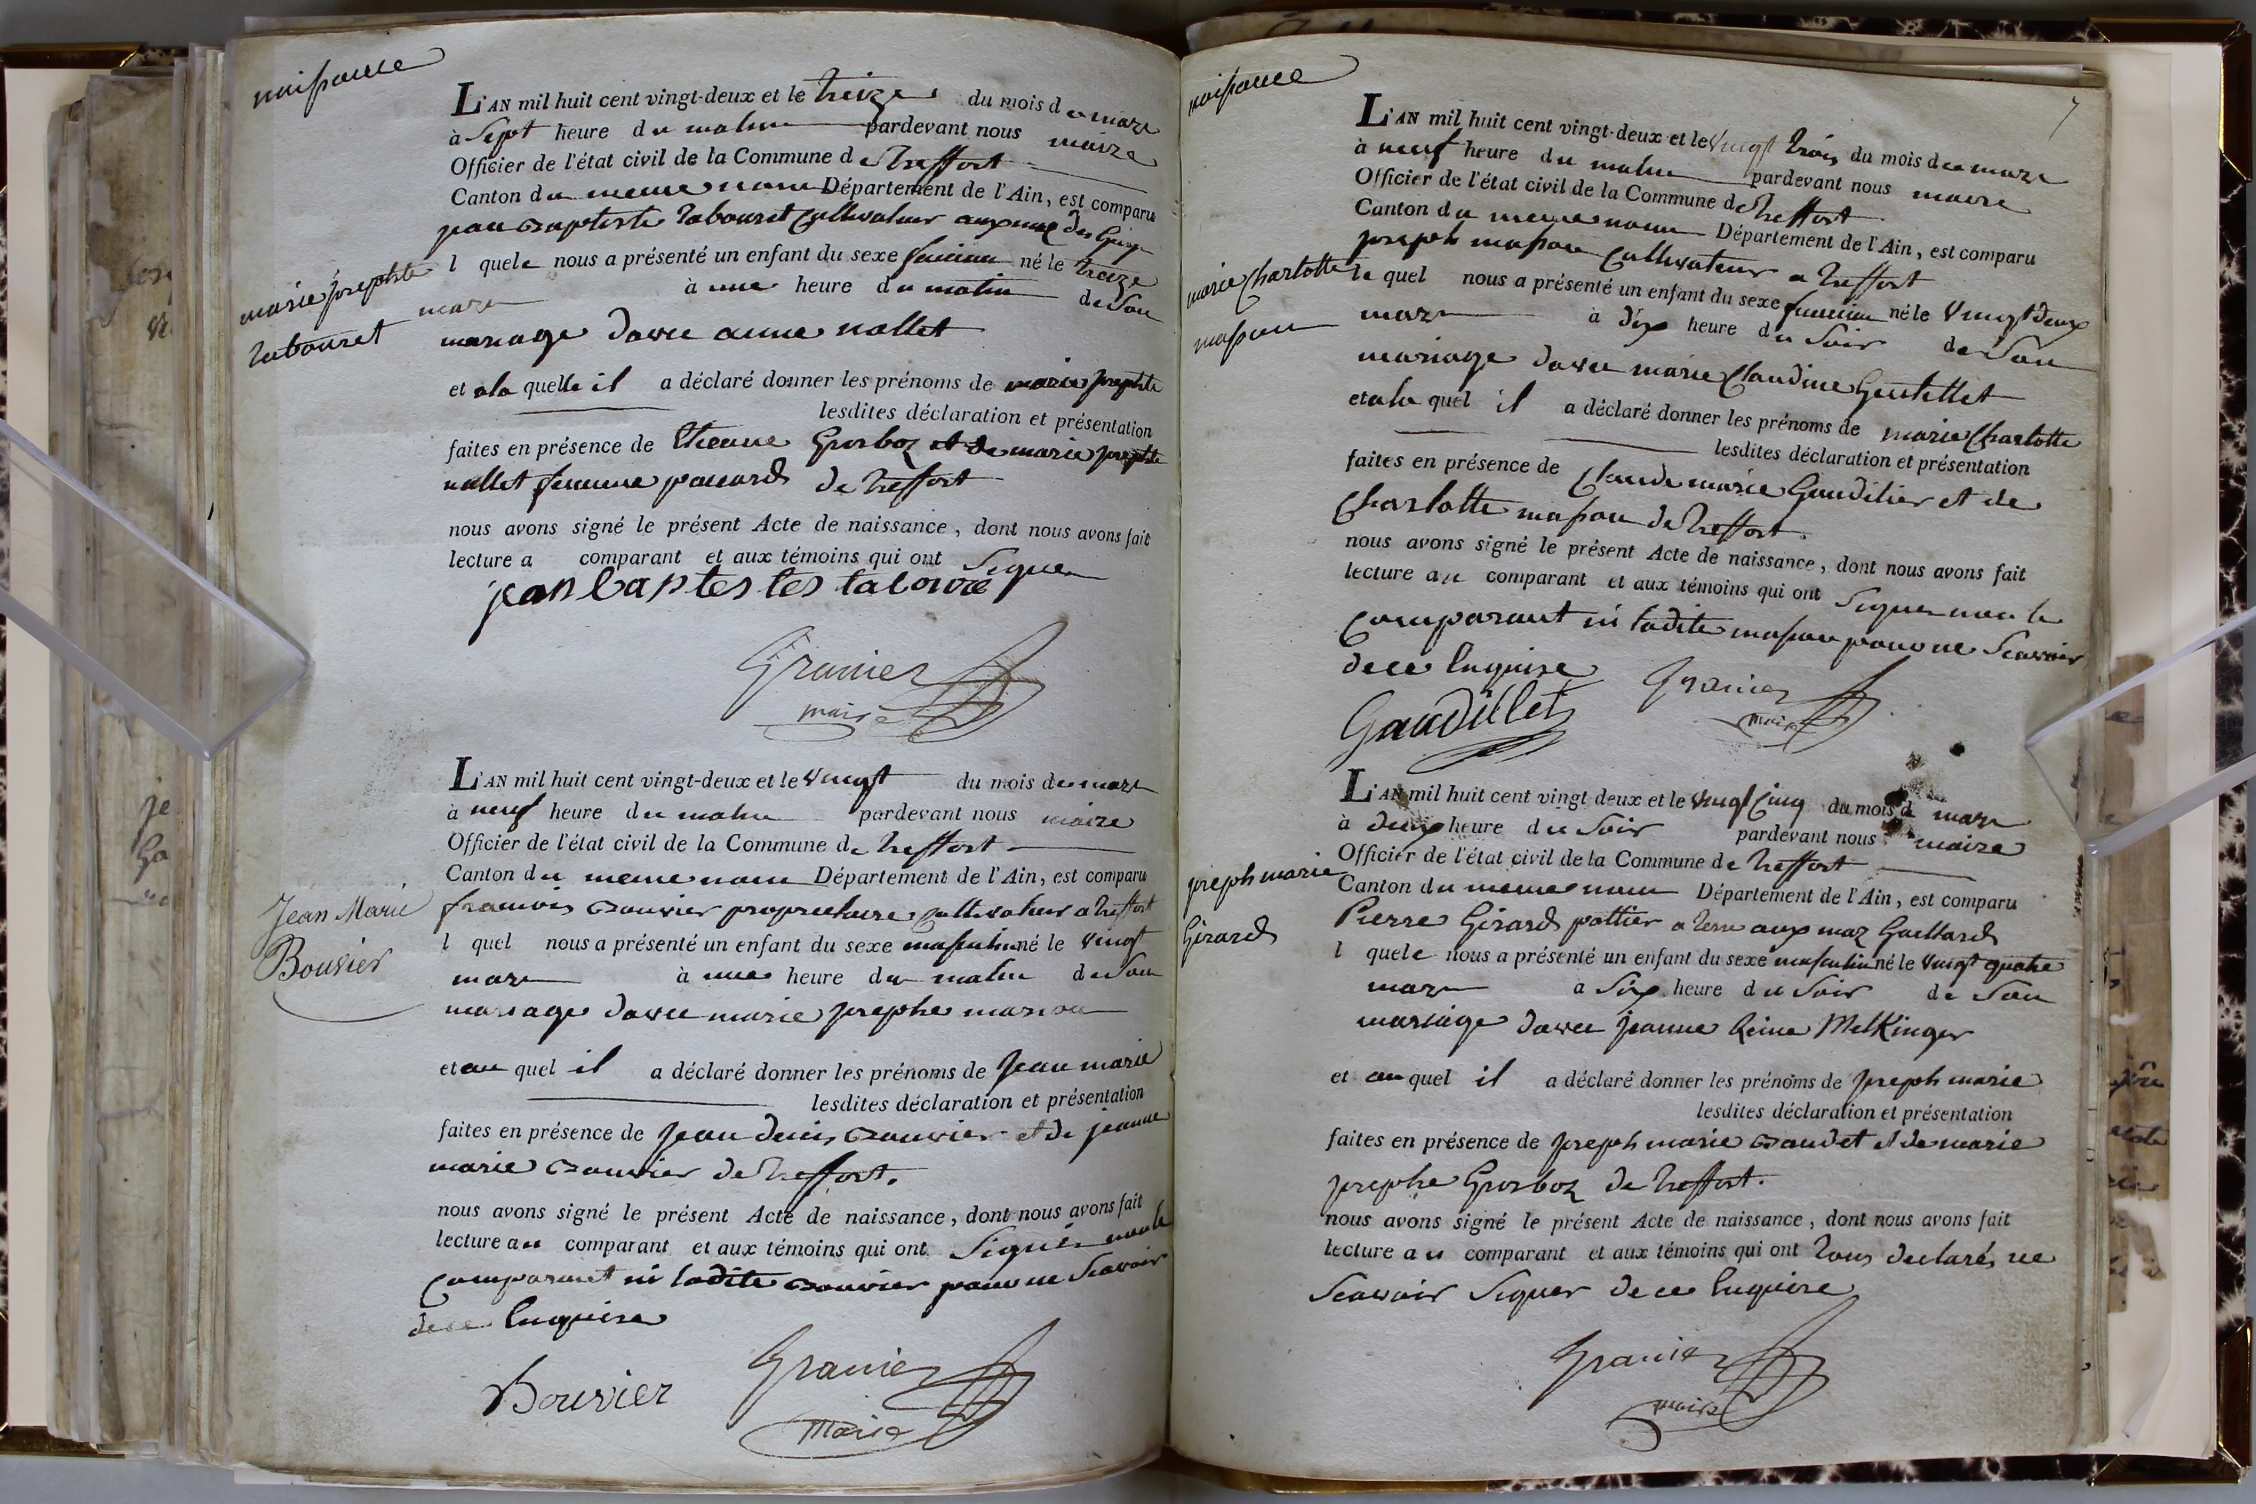 naissance
L'AN mil huit cent vingt-deux et le treize du mois de mars
à sept heure du matin pardevant nous maire
Officier de l'état civil de la Commune de treffort
Canton du meme nom Département de l'Ain, est comparu
jean Baptiste tabouret Cultivateur aux maz des
l quele nous a présenté un enfant du sexe feminin né le treize
mars à une heure du matin de son
mariage davec anne nallet
et a la quelle il a déclaré donner les prénoms de marie josephte
lesdites déclaration et présentation
faites en présence de Etienne Grosboz et de marie josephte
nallet femme ponard de treffort
nous avons signé le présent Acte de naissance, dont nous avons fait
lecture a comparant et aux témoins qui ont signer
marie josephte
tabouret
Granier
maire
L'AN mil huit cent vingt-deux et le vingt du mois de mars
à neuf heure du matin pardevant nous maire
Officier de l'état civil de la Commune de treffort
Canton du meme nom Département de l'Ain, est comparu
francois Bouvier proprietaire Cultivateur a treffort
l quel nous a présenté un enfant du sexe masculin né le vingt
mars à une heure du matin de son
mariage davec marie josephe marion
et au quel il a déclaré donner les prénoms de Jean marie
lesdites déclaration et présentation
faites en présence de Jean denis Bouvier et de jeanne
marie Bouvier de treffort.
nous avons signé le présent Acte de naissance, dont nous avons fait
lecture au comparant et aux témoins qui ont signés non le
Comparant ni ladite Bouvier pour ne scavoir
de ce Enquise
Jean Marie
Bouvier
Bouvier
Granier
Maire
naissance
7
L'AN mil huit cent vingt-deux et le vingt trois du mois de mars
à neuf heure du matin pardevant nous maire
Officier de l'état civil de la Commune de treffort
Canton du meme nom Département de l'Ain, est comparu
joseph masson Cultivateur a treffort
le quel nous a présenté un enfant du sexe feminin né le vingt deux
mars à dix heure du soir de son
mariage davec marie Claudine Gentellet
et a la quel il a déclaré donner les prénoms de marie Charlotte
lesdites déclaration et présentation
faites en présence de Claude marie Gaudilier et de
Charlotte masson de treffort.
nous avons signé le présent Acte de naissance, dont nous avons fait
lecture au comparant et aux témoins qui ont signer non le
Comparant ni ladite masson pour ne scavoir
de ce Enquise
marie Charlotte
masson
Gaudillet
Granier
maire
L'AN mil huit cent vingt deux et le vingt Cinq du mois d mars
à deux heure du soir pardevant nous maire
Officier de l'état civil de la Commune de treffort
Canton du meme nom Département de l'Ain, est comparu
Pierre Girard pottier a terre aux maz Gaillard
l quele nous a présenté un enfant du sexe masculin né le vingt quatre
mars à six heure du soir de son
mariage davec jeanne Reine Melkinger
et au quel il a déclaré donner les prénoms de joseph marie
lesdites déclaration et présentation
faites en présence de joseph marie Baudet et de marie
josephe Grosboz de treffort.
nous avons signé le présent Acte de naissance, dont nous avons fait
lecture au comparant et aux témoins qui ont tous declarés ne
scavoir signer de ce Enquise
joseph marie
Girard
Granier
maire